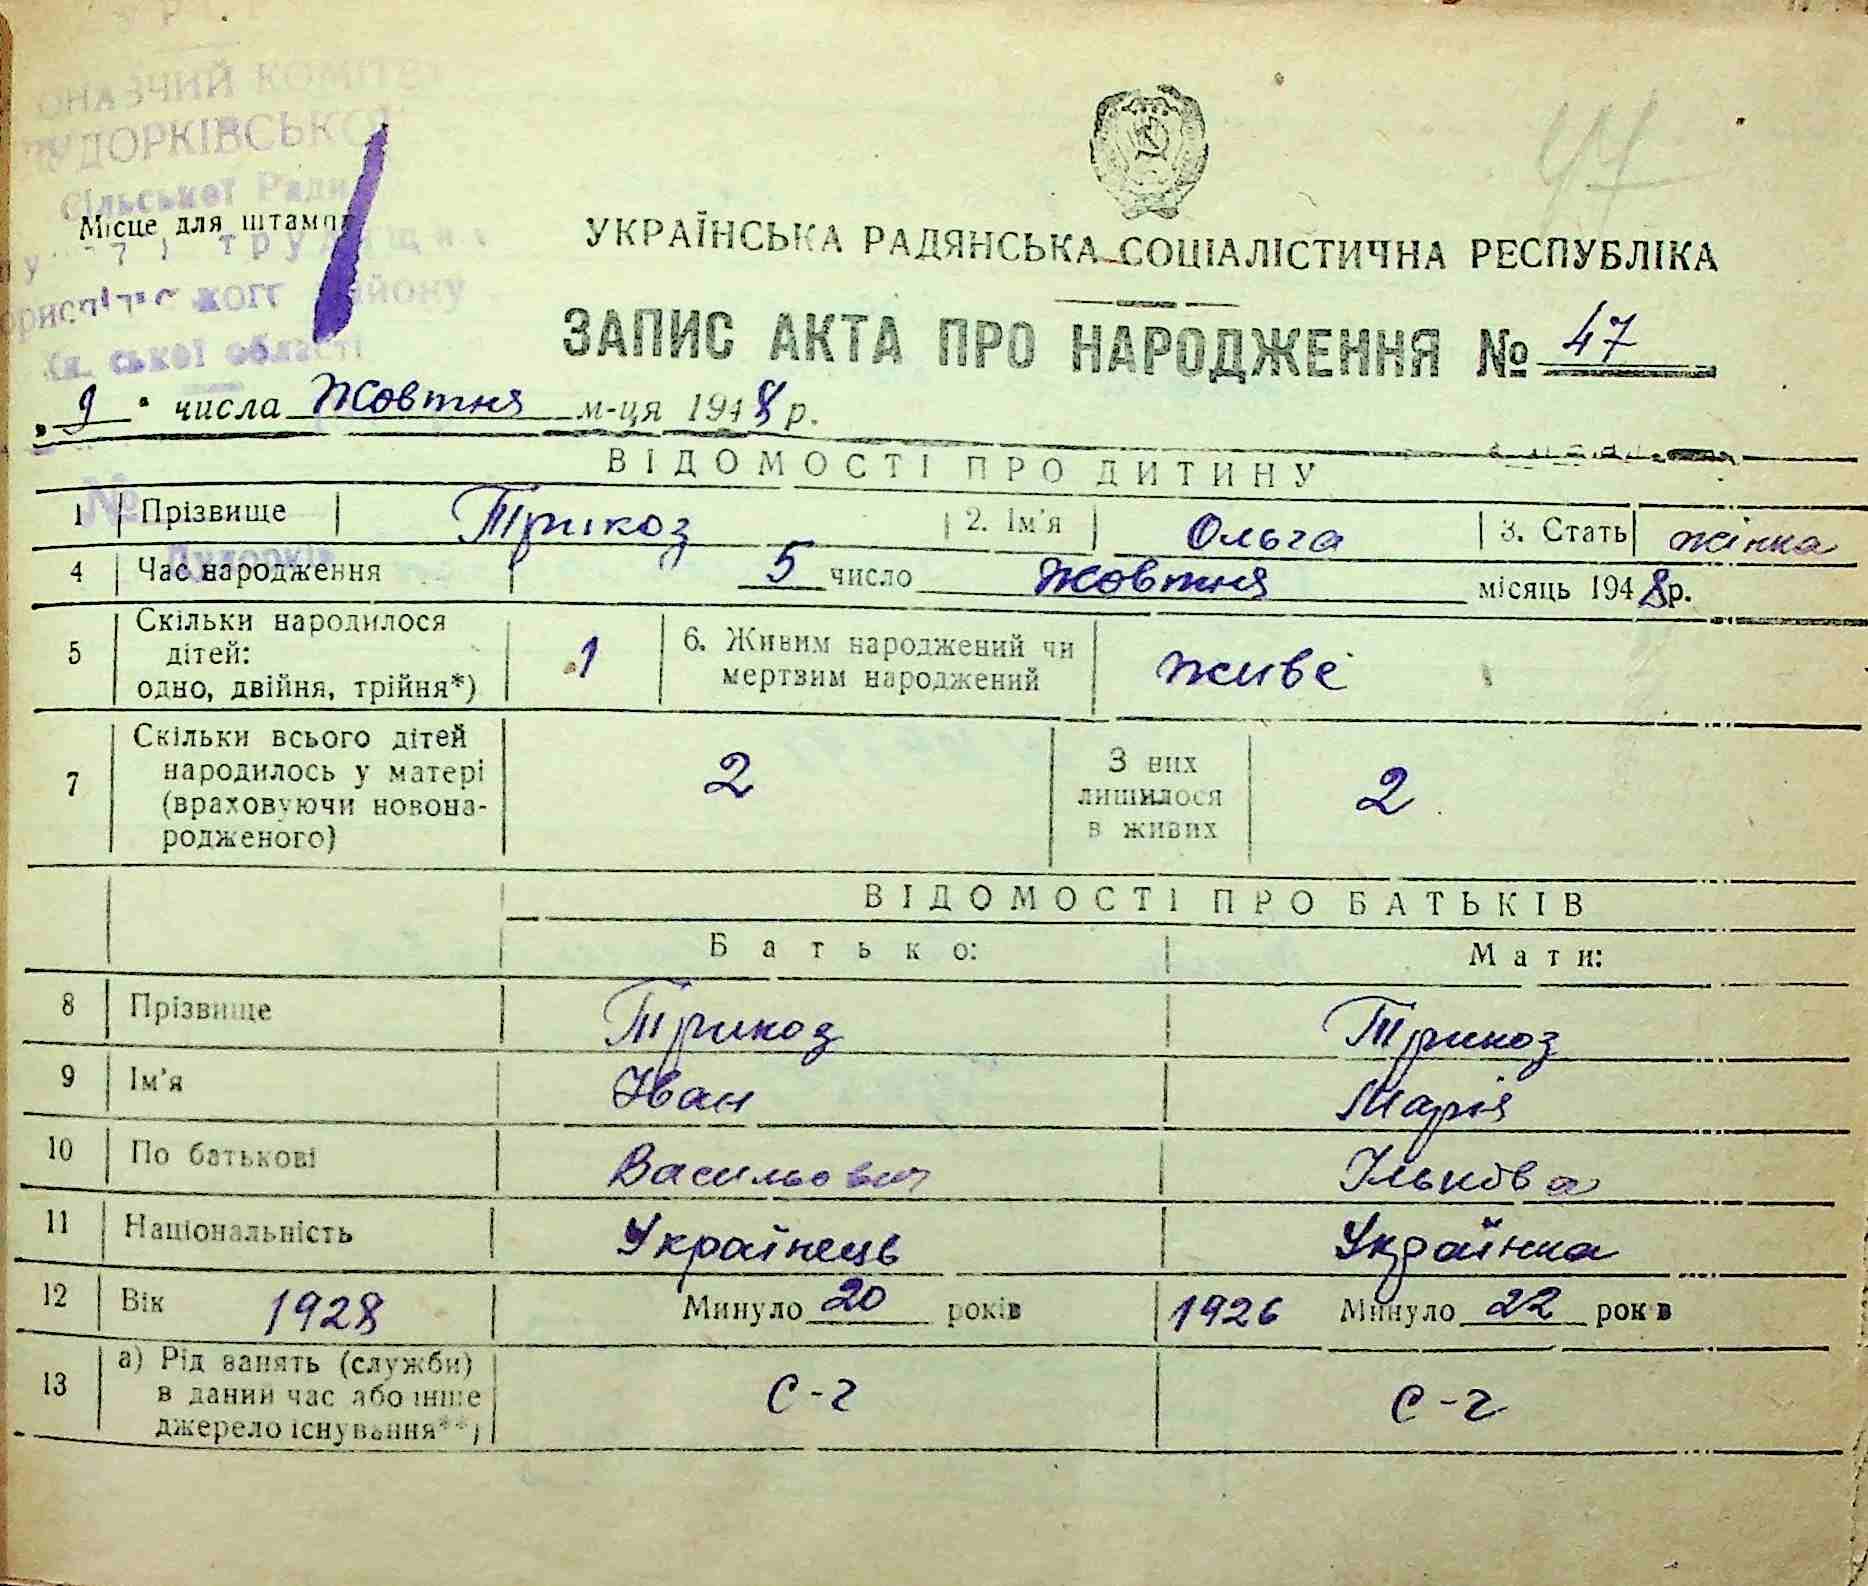 УРСР
КОМІТЕТ
ДУДОРКІВСЬКОЇ
Сільської Ради
Місце для штампу
трудящих
району
ської області
47
УКРАЇНСЬКА РАДЯНСЬКА СОЦІАЛІСТИЧНА РЕСПУБЛІКА
ЗАПИС АКТА ПРО НАРОДЖЕННЯ № 47
„9“ числа Жовтня м-ця 1948 р.
ВІДОМОСТІ ПРО ДИТИНУ
№
1 Прізвище Трикоз 2. Ім'я Ольга 3. Стать жінка
4 Час народження 5 число Жовтня місяць 1948р.
5 Скільки народилося
дітей:
одно, двійня, трійня*) 1 6. Живим народжений чи
мертвим народжений живе
7 Скільки всього дітей
народилось у матері
(враховуючи новона-
родженого) 2 З них
лишилося
в живих 2
ВІДОМОСТІ ПРО БАТЬКІВ
Батько: Мати:
8 Прізвище Трикоз Трикоз
9 Ім'я Іван Марія
10 По батькові Васильович Ількова
11 Національність Українець Українка
12 Вік 1928 Минуло 20 років 1926 Минуло 22 років
13 а) Рід занять (служби)
в даний час або інше
джерело існування**) с-г с-г